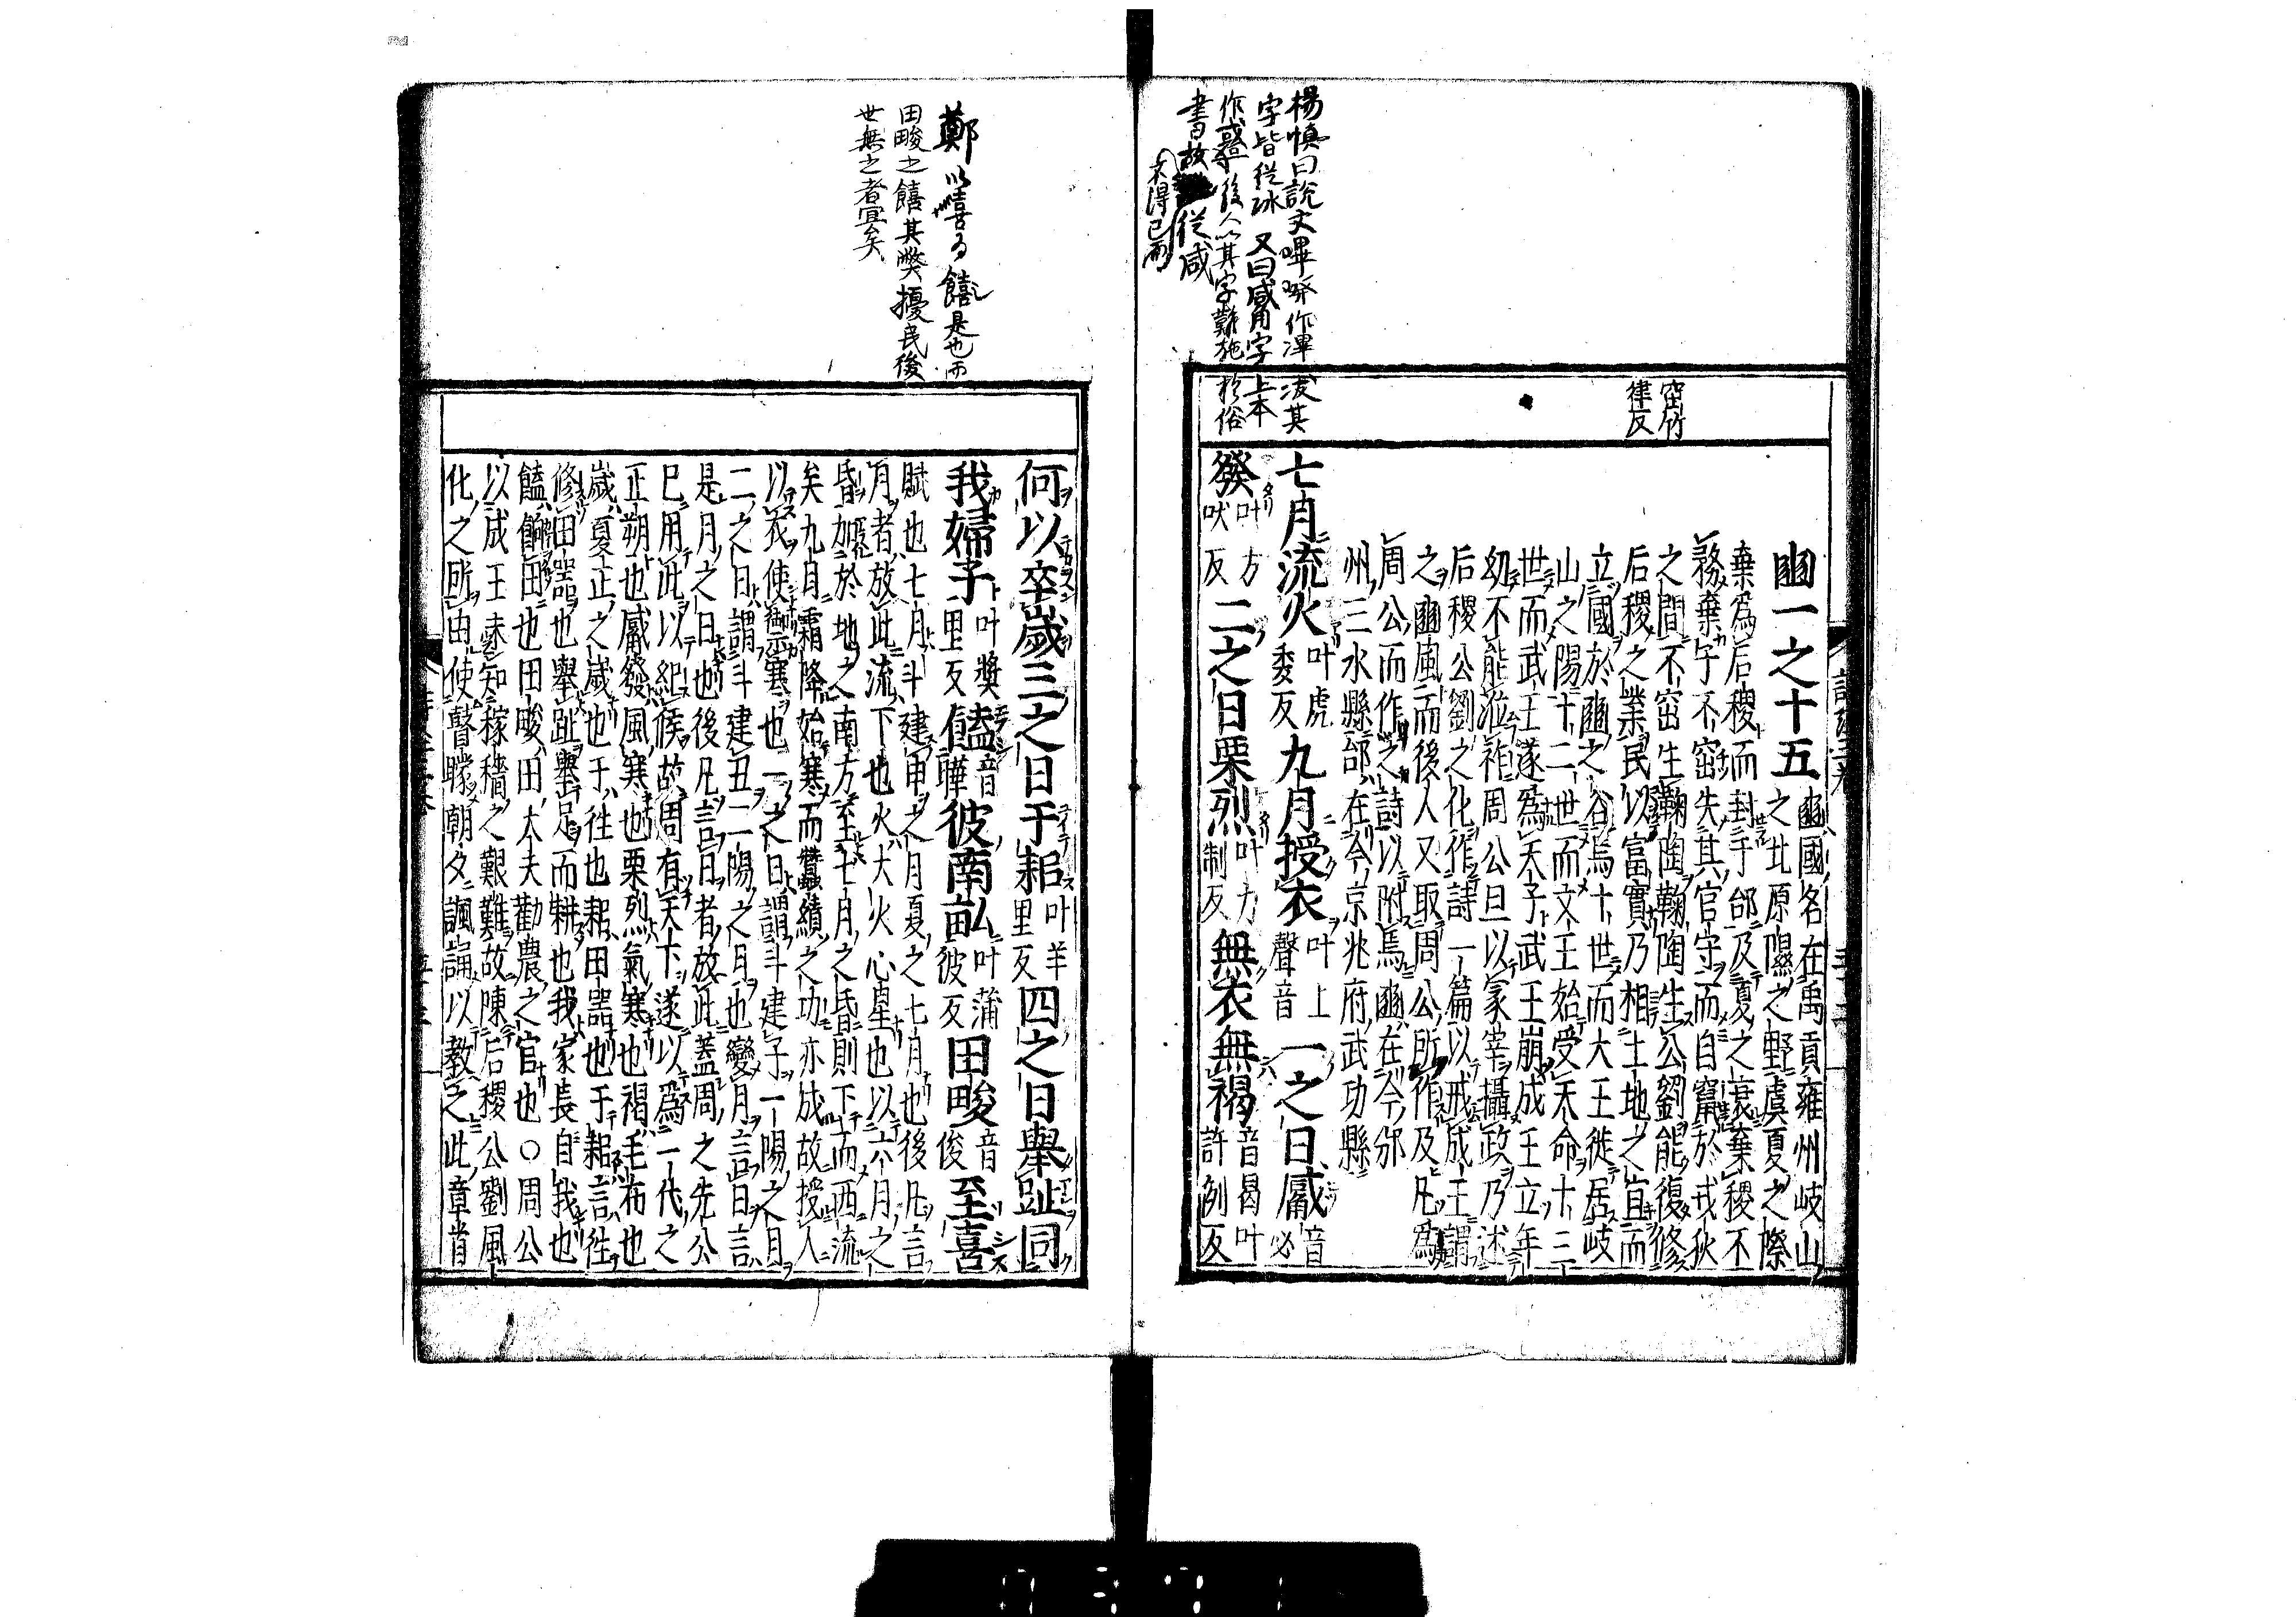 楊慎曰説文㓖冹作滭冹其
字皆從冰 又曰觱角字上本
後人以其字難施於俗
書故從咸
不得已而
窋竹
律反
豳一之十五 豳國名在禹貢雍州岐山
之北原隰之野虞夏之際
棄爲后稷而封于邰及夏之衰棄稷不
務棄子不窋失其官守而自竄於戎狄
之間不窋生鞠陶鞠陶生公劉能復修
后稷之業民以富實乃相土地之宜而
立國於豳之谷焉十世而大王徙居岐
山之陽十二世而文王始受天命十三
世而武王遂爲天子武王崩成王立年
幼不能涖祚周公旦以冢宰攝政乃述
后稷公劉之化作詩一篇以戒成王謂
之豳風而後人又取周公所作及凡爲
周公而作之詩以附焉豳在今邠
州三水縣邰在今京兆府武功縣
七月流火 叶虎委反 九月授衣 叶上聲 音 一之日觱 音必
發 叶方吠反 二之日栗烈 叶力制反 無衣無褐 音曷叶許例反
鄭以喜為饎是也而
田畯之饎其獘擾民後
世無之者宜矣
何以卒歲三之日于耜 叶羊里反 四之日舉趾同
我婦子 叶奬里反 饁 音曄 彼南畝 叶蒲彼反 田畯 音俊 至喜
賦也七月斗建申之月夏之七月也後凡言
月者放此流下也火大火心星也以六月之
昏加於地之南方至七月之昏則下而西流
矣九月霜降始寒而蠶績之功亦成故授人
以衣使禦寒也一之日謂斗建子一陽之月
二之日謂斗建丑二陽之月也變月言日言
是月之日也後凡言日者放此蓋周之先公
已用此以紀候故周有天下遂以爲一代之
正朔也觱發風寒也栗烈氣寒也褐毛布也
歲夏正之歲也于往也耜田器也于耜言往
修田器也舉趾舉足而耕也我家長自我也
饁餉田也田畯田大夫勸農之官也○周公
以成王未知稼穡之艱難故陳后稷公劉風
化之所由使瞽矇朝夕諷誦以教之此章首